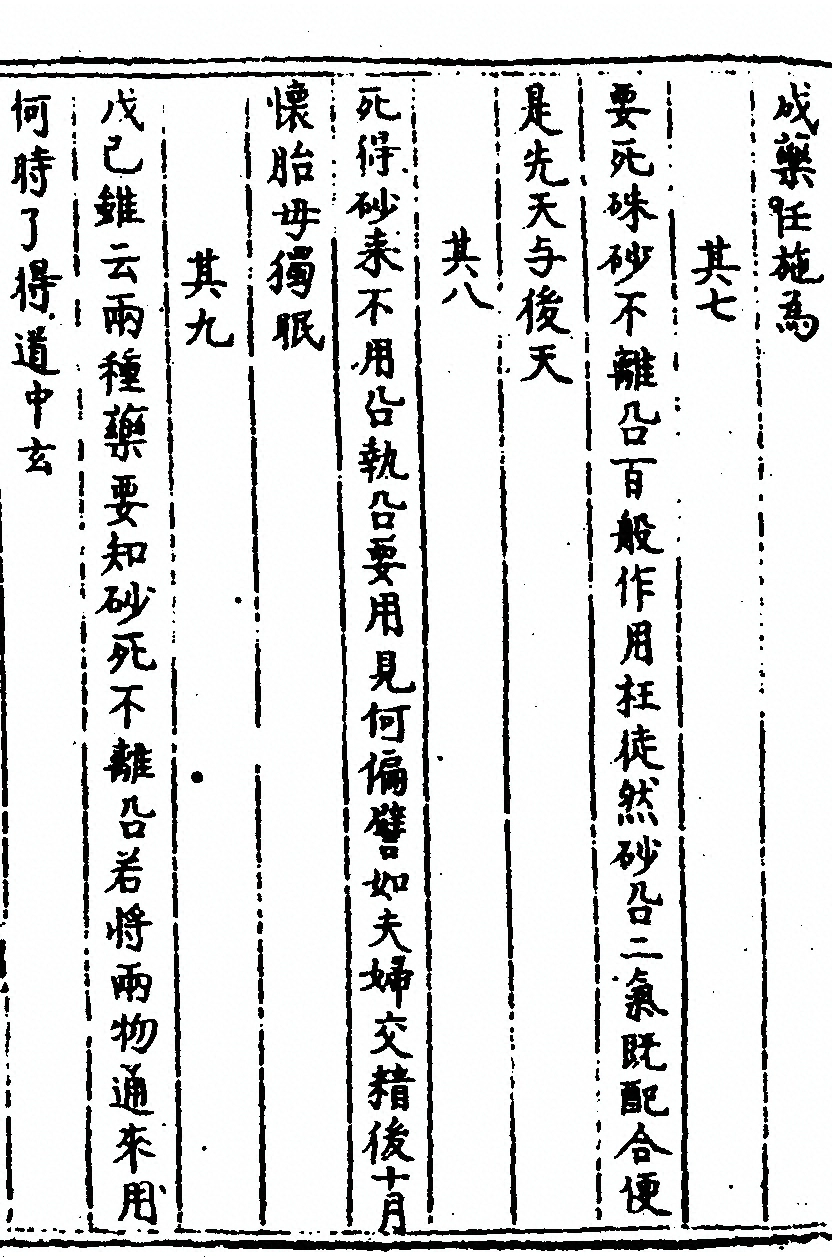 成藥任施為
其七
要死硃砂不離㕣百般作用枉徒然砂㕣二氣既配合便
是先天与後天
其八
死得砂来不用㕣執㕣要用見何偏譬如夫婦交精後十月
懷胎毋獨眠
其九
戊己雖云兩種藥要知砂死不離㕣若将兩物通來用
何時了得道中玄